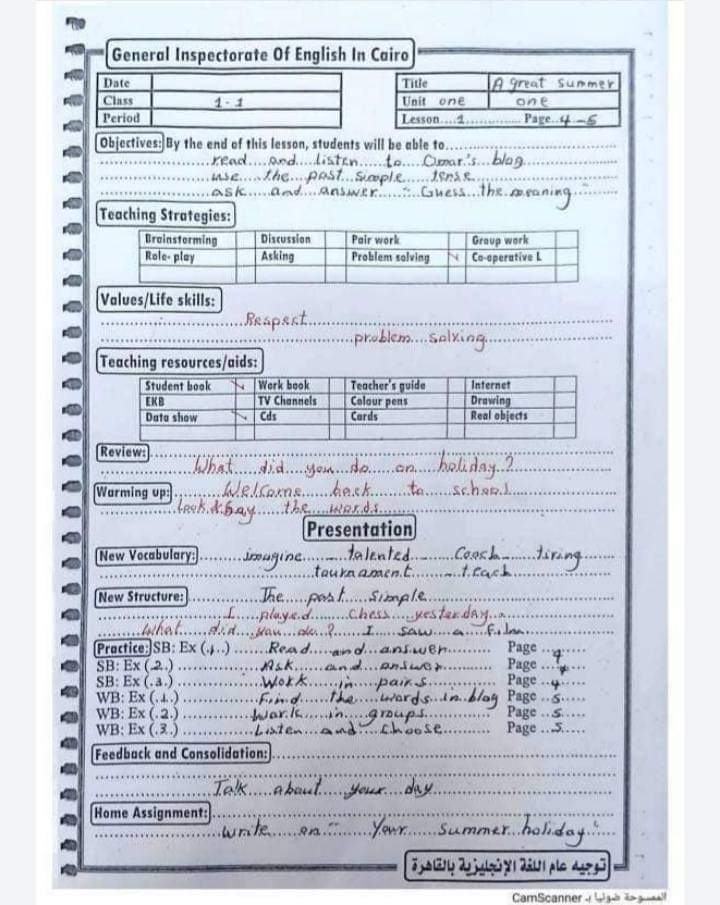 General Inspectorate Of English In Cairo
Date
Class 1-1
Period
Title A great summer
Unit one one
Lesson....1............. Page..4-5
Objectives: By the end of this lesson, students will be able to..............
read and listen to Omar's blog
use the past simple tense
ask and answer "Guess the meaning"
Teaching Strategies:
Brainstorming Discussion Pair work Group work
Role- play Asking Problem solving Co-operative L
Values/Life skills:
Respect
problem solving
Teaching resources/aids:
Student book Work book Teacher's guide Internet
EKB TV Channels Colour pens Drawing
Data show Cds Cards Real objects
Review:
What did you do on holiday?
Warming up: Welcome back to school
Look & say the words
Presentation
New Vocabulary: imagine talented Coach tiring
tournament teach
New Structure: The past simple
I played chess yesterday.
What did you do? I saw a film
Practice: SB: Ex (.1..) Read and answer Page 4
SB: Ex (.2.) Ask and answer Page
SB: Ex (.3.) Work in pairs Page 4
WB: Ex (.1.) Find the words in blog Page 5
WB: Ex (.2.) Work in groups Page 5
WB: Ex (.3.) Listen and choose Page 5
Feedback and Consolidation:
Talk about your day
Home Assignment:
write on " Your summer holiday "
توجيه عام اللغة الإنجليزية بالقاهرة
الممسوحة ضوئيا بـ CamScanner